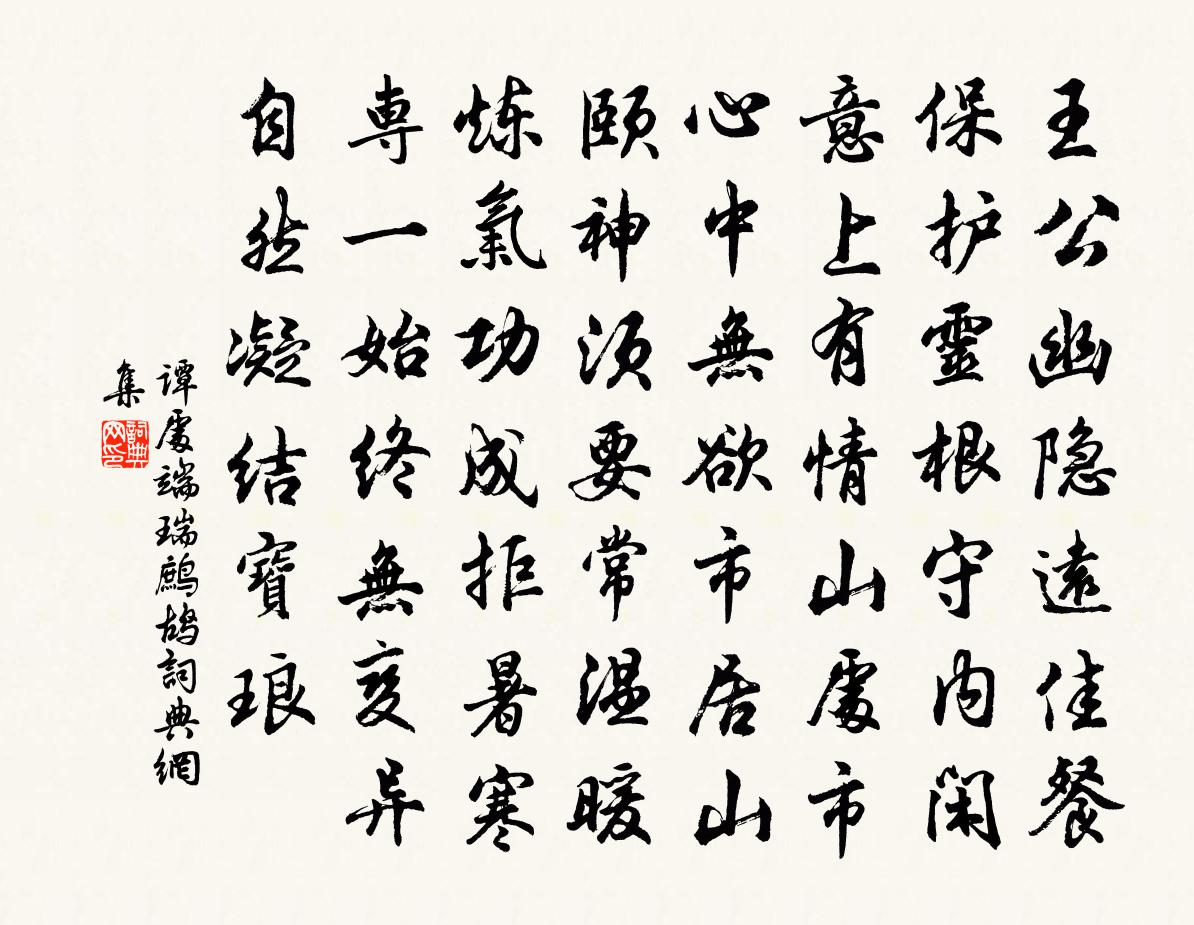 王公幽隐遠佳餐
保护靈根守内闲
意上有情山處市
心中無欲市居山
頤神須要常温暖
炼氣功成拒暑寒
専一始终無变异
自然凝结寶琅
谭處端瑞鹧鸪詞典網
集
詞典网印